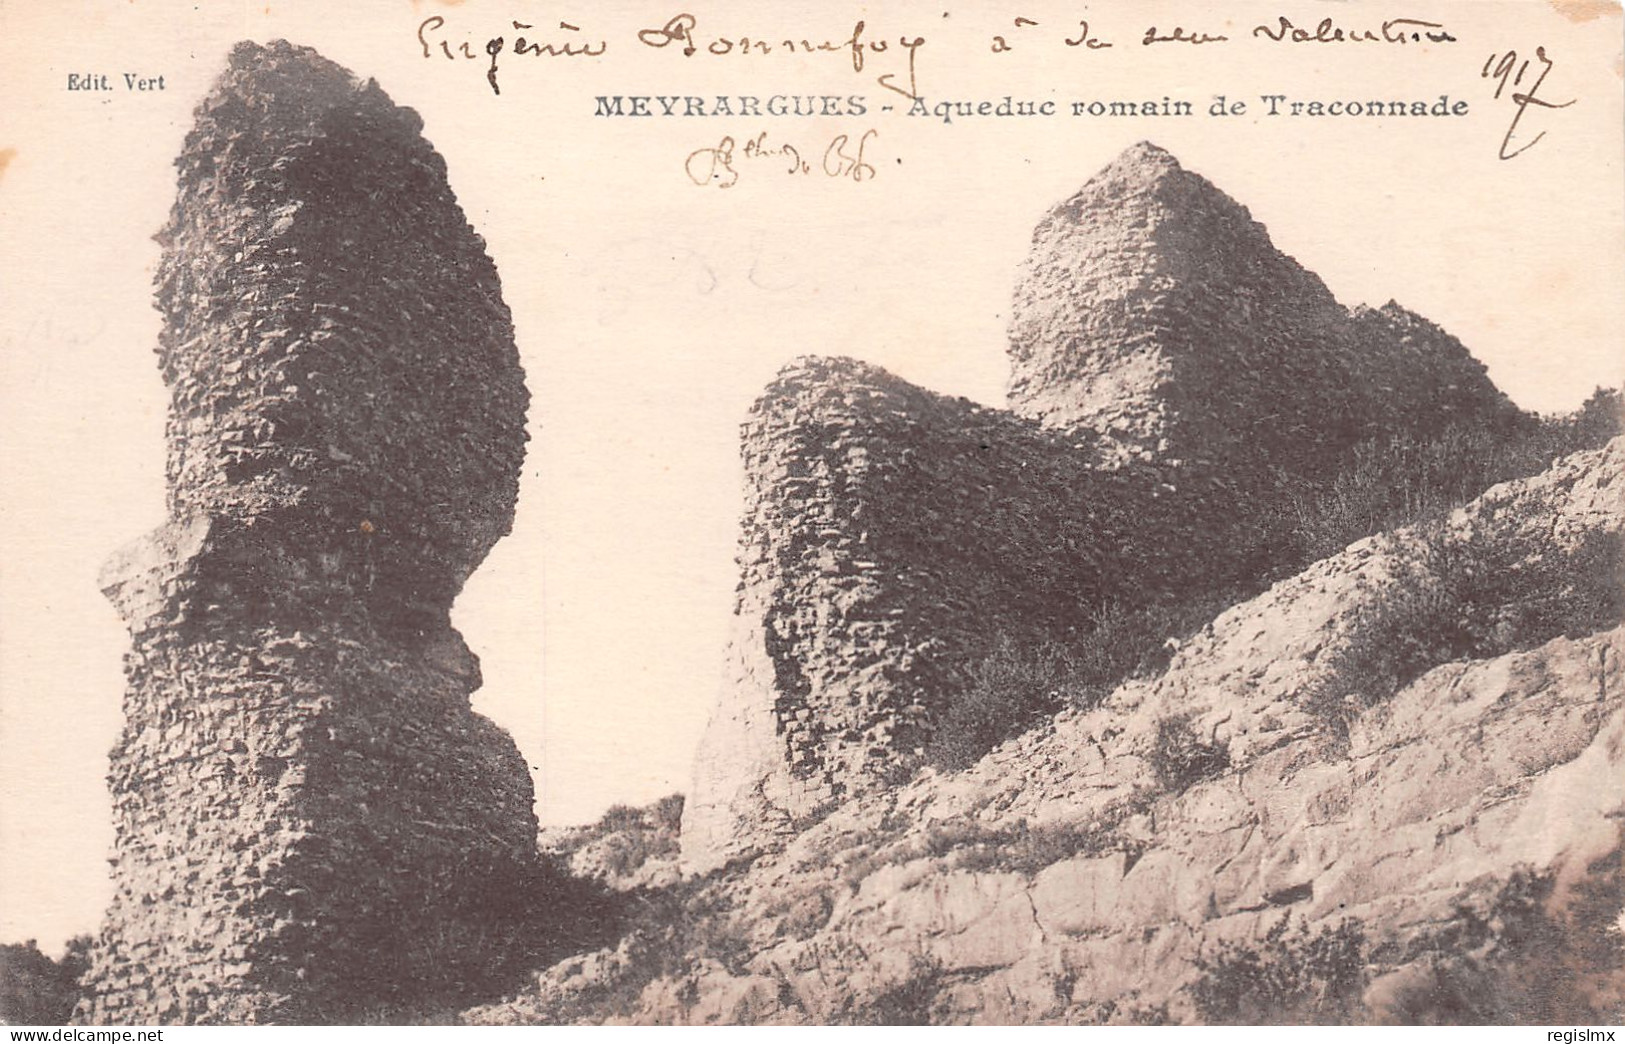 Eugénie Bonnefoy à sa sœur Valentine
1917
Edit. Vert
MEYRARGUES - Aqueduc romain de Traconnade
Bches du Rh.
www.delcampe.net
regislmx